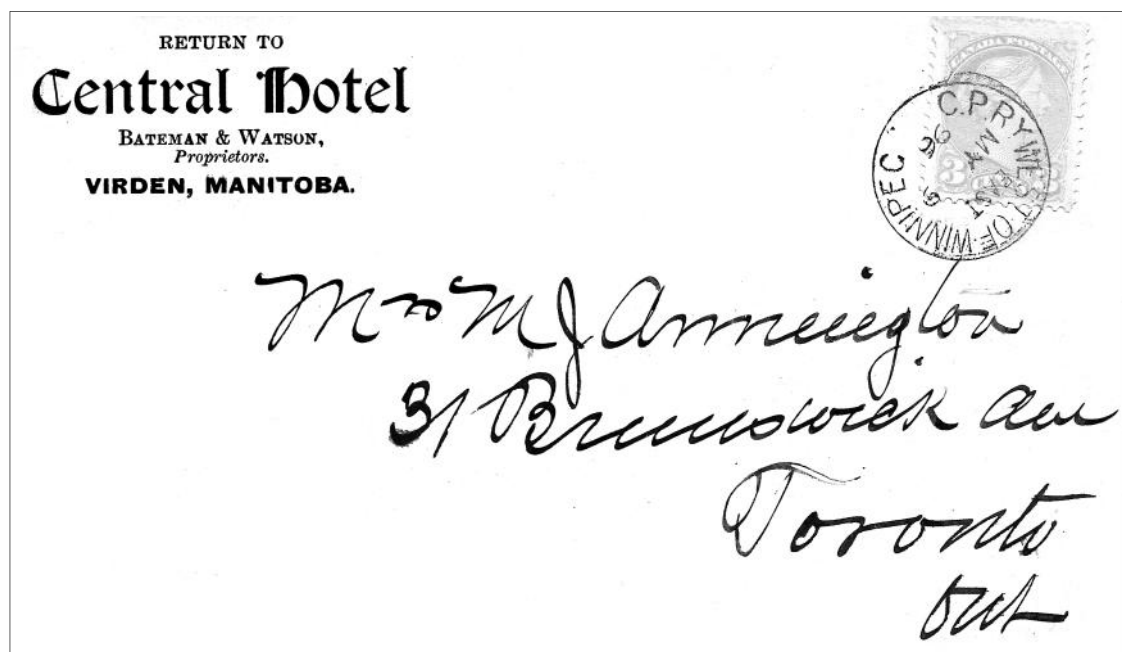 RETURN TO
Central Hotel
BATEMAN & WATSON,
Proprietors.
VIRDEN, MANITOBA.
CANADA POSTAGE
C.P.RY WEST OF WINNIPEG
EAST
MY
3
Mrs M J Armington
31 Brunswick Ave
Toronto
Ont